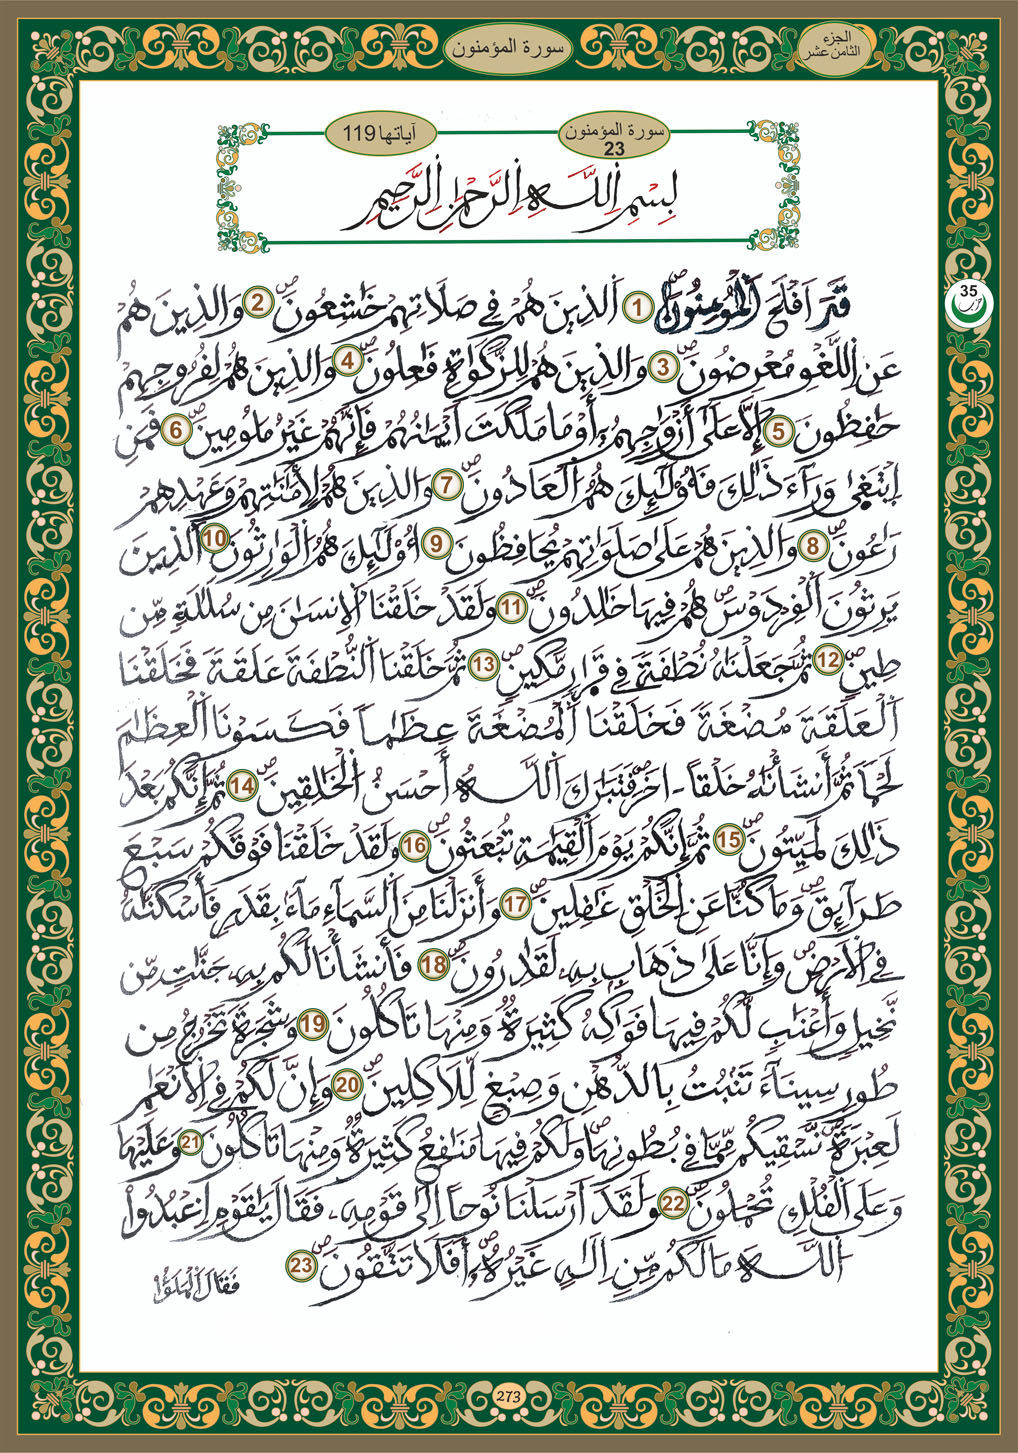 الجزء
الثامن عشر
سورة المؤمنون
سورة المؤمنون
23
آياتها 119
بِسْمِ اِللَّهِ اِلرَّحْمَٰنِ اِلرَّحِيمِ
35
حزب
قَدَ اَفْلَحَ اَلْمُؤْمِنُونَ 1 اَلذِينَ هُمْ فِي صَلَاتِهِمْ خَٰشِعُونَ 2 وَالذِينَ هُمْ
عَنِ اِللَّغْوِ مُعْرِضُونَ 3 وَالذِينَ هُمْ لِلزَّكَوٰةِ فَٰعِلُونَ 4 وَالذِينَ هُمْ لِفُرُوجِهِمْ
حَٰفِظُونَ 5 إِلَّا عَلَىٰ أَزْوَٰجِهِمُۥ أَوْ مَا مَلَكَتَ اَيْمَٰنُهُمْ فَإِنَّهُمْ غَيْرُ مَلُومِينَ 6 فَمَنِ
اِبْتَغَىٰ وَرَآءَ ذَٰلِكَ فَأُوْلَٰٓئِكَ هُمُ اَلْعَادُونَ 7 وَالذِينَ هُمْ لِأَمَٰنَٰتِهِمْ وَعَهْدِهِمْ
رَٰعُونَ 8 وَالذِينَ هُمْ عَلَىٰ صَلَوَاتِهِمْ يُحَافِظُونَ 9 أُوْلَٰٓئِكَ هُمُ اَلْوَارِثُونَ 10 اَلذِينَ
يَرِثُونَ اَلْفِرْدَوْسَ هُمْ فِيهَا خَالِدُونَ 11 وَلَقَدْ خَلَقْنَا اَلْاِنسَٰنَ مِن سُلَٰلَةٍ مِّن
طِينٍ 12 ثُمَّ جَعَلْنَٰهُ نُطْفَةً فِي قَرَارٍ مَّكِينٍ 13 ثُمَّ خَلَقْنَا اَلنُّطْفَةَ عَلَقَةً فَخَلَقْنَا
اَلْعَلَقَةَ مُضْغَةً فَخَلَقْنَا اَلْمُضْغَةَ عِظَٰماً فَكَسَوْنَا اَلْعِظَٰمَ
لَحْماً ثُمَّ أَنشَأْنَٰهُ خَلْقاً - اٰخَرَ فَتَبَٰرَكَ اَللَّهُ أَحْسَنُ اُلْخَٰلِقِينَ 14 ثُمَّ إِنَّكُم بَعْدَ
ذَٰلِكَ لَمَيِّتُونَ 15 ثُمَّ إِنَّكُمْ يَوْمَ اَلْقِيَٰمَةِ تُبْعَثُونَ 16 وَلَقَدْ خَلَقْنَا فَوْقَكُمْ سَبْعَ
طَرَآئِقَ وَمَا كُنَّا عَنِ اِلْخَلْقِ غَٰفِلِينَ 17 وَأَنزَلْنَا مِنَ اَلسَّمَآءِ مَآءً بِقَدَرٍ فَأَسْكَنَّٰهُ
فِي اِلْارْضِ وَإِنَّا عَلَىٰ ذَهَابٍ بِهِۦ لَقَٰدِرُونَ 18 فَأَنشَأْنَا لَكُم بِهِۦ جَنَّٰتٍ مِّن
نَّخِيلٍ وَأَعْنَٰبٍ لَّكُمْ فِيهَا فَوَٰكِهُ كَثِيرَةٌ وَمِنْهَا تَأْكُلُونَ 19 وَشَجَرَةً تَخْرُجُ مِن
طُورِ سِينَآءَ تَنۢبُتُ بِالدُّهْنِ وَصِبْغٍ لِّلَاكِلِينَ 20 وَإِنَّ لَكُمْ فِي اِلْانْعَٰمِ
لَعِبْرَةً نَّسْقِيكُم مِّمَّا فِي بُطُونِهَا وَلَكُمْ فِيهَا مَنَٰفِعُ كَثِيرَةٌ وَمِنْهَا تَأْكُلُونَ 21 وَعَلَيْهَا
وَعَلَى اَلْفُلْكِ تُحْمَلُونَ 22 وَلَقَدَ اَرْسَلْنَا نُوحاً اِلَىٰ قَوْمِهِۦ فَقَالَ يَٰقَوْمِ اِعْبُدُواْ
اُللَّهَ مَا لَكُم مِّنِ اِلَٰهٍ غَيْرُهُۥٓ أَفَلَا تَتَّقُونَ 23
فَقَالَ اَلْمَلَؤُاْ
273